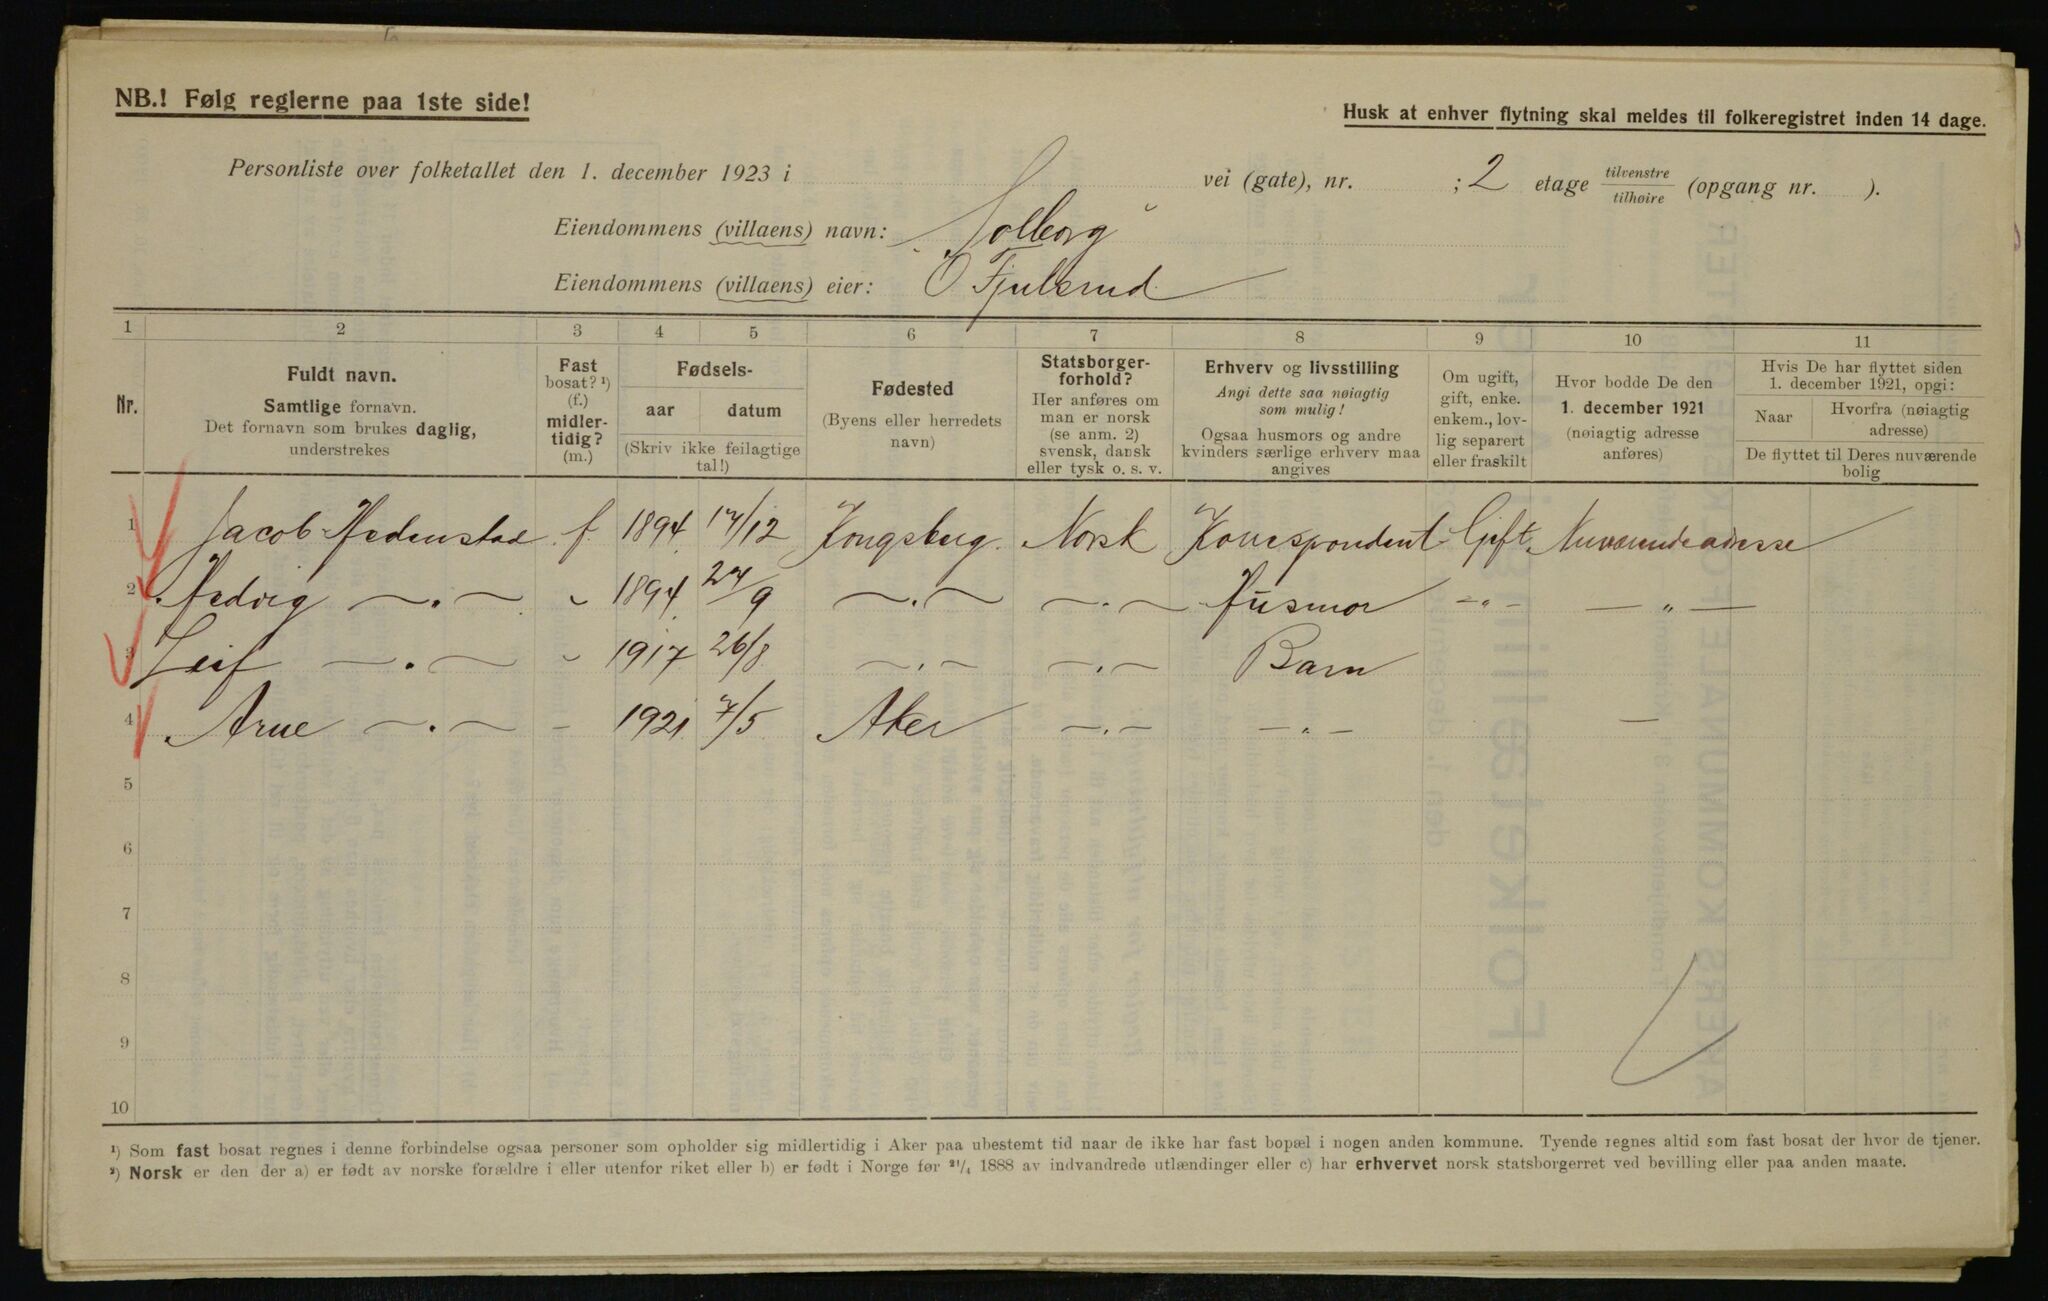 NB.! Følg reglerne paa 1ste side!
Husk at enhver flytning skal meldes til folkeregistret inden 14 dage.
Personliste over folketallet den 1. december 1923 i vei (gate), nr. ; 2 etage tilvenstre tilhøire (opgang nr. ).
Eiendommens (villaens) navn: Solborg
Eiendommens (villaens) eier: O Fjulsrud
1 2 3 4 5 6 7 8 9 10 11
Nr.
Fuldt navn.
Samtlige fornavn.
Det fornavn som brukes daglig,
understrekes
Fast
bosat? ¹)
(f.)
midler-
tidig?
(m.)
Fødsels-
aar datum
(Skriv ikke feilagtige
tal!)
Fødested
(Byens eller herredets
navn)
Statsborger-
forhold?
Her anføres om
man er norsk
(se anm. 2)
svensk, dansk
eller tysk o. s. v.
Erhverv og livsstilling
Angi dette saa nøiagtig
som mulig!
Ogsaa husmors og andre
kvinders særlige erhverv maa
angives
Om ugift,
gift, enke.
enkem., lov-
lig separert
eller fraskilt
Hvor bodde De den
1. december 1921
(nøiagtig adresse
anføres)
Hvis De har flyttet siden
1. december 1921, opgi:
Naar Hvorfra (nøiagtig
adresse)
De flyttet til Deres nuværende
bolig
1 Jacob Hedenstad f. 1894 17/12 Kongsberg Norsk Korrespondent Gift Nuværende adresse
2 Hedvig —.— „ 1894 27/9 —.— —.— Husmor —„— —„—
3 Leif —.— „ 1917 26/8 —.— —.— Barn
4 Arne —.— – 1921 7/5 Aker —.— —„— —
5
6
7
8
9
10
¹) Som fast bosat regnes i denne forbindelse ogsaa personer som opholder sig midlertidig i Aker paa ubestemt tid naar de ikke har fast bopæl i nogen anden kommune. Tyende regnes altid som fast bosat der hvor de tjener.
²) Norsk er den der a) er født av norske forældre i eller utenfor riket eller b) er født i Norge før ²¹/₄ 1888 av indvandrede utlændinger eller c) har erhvervet norsk statsborgerret ved bevilling eller paa anden maate.